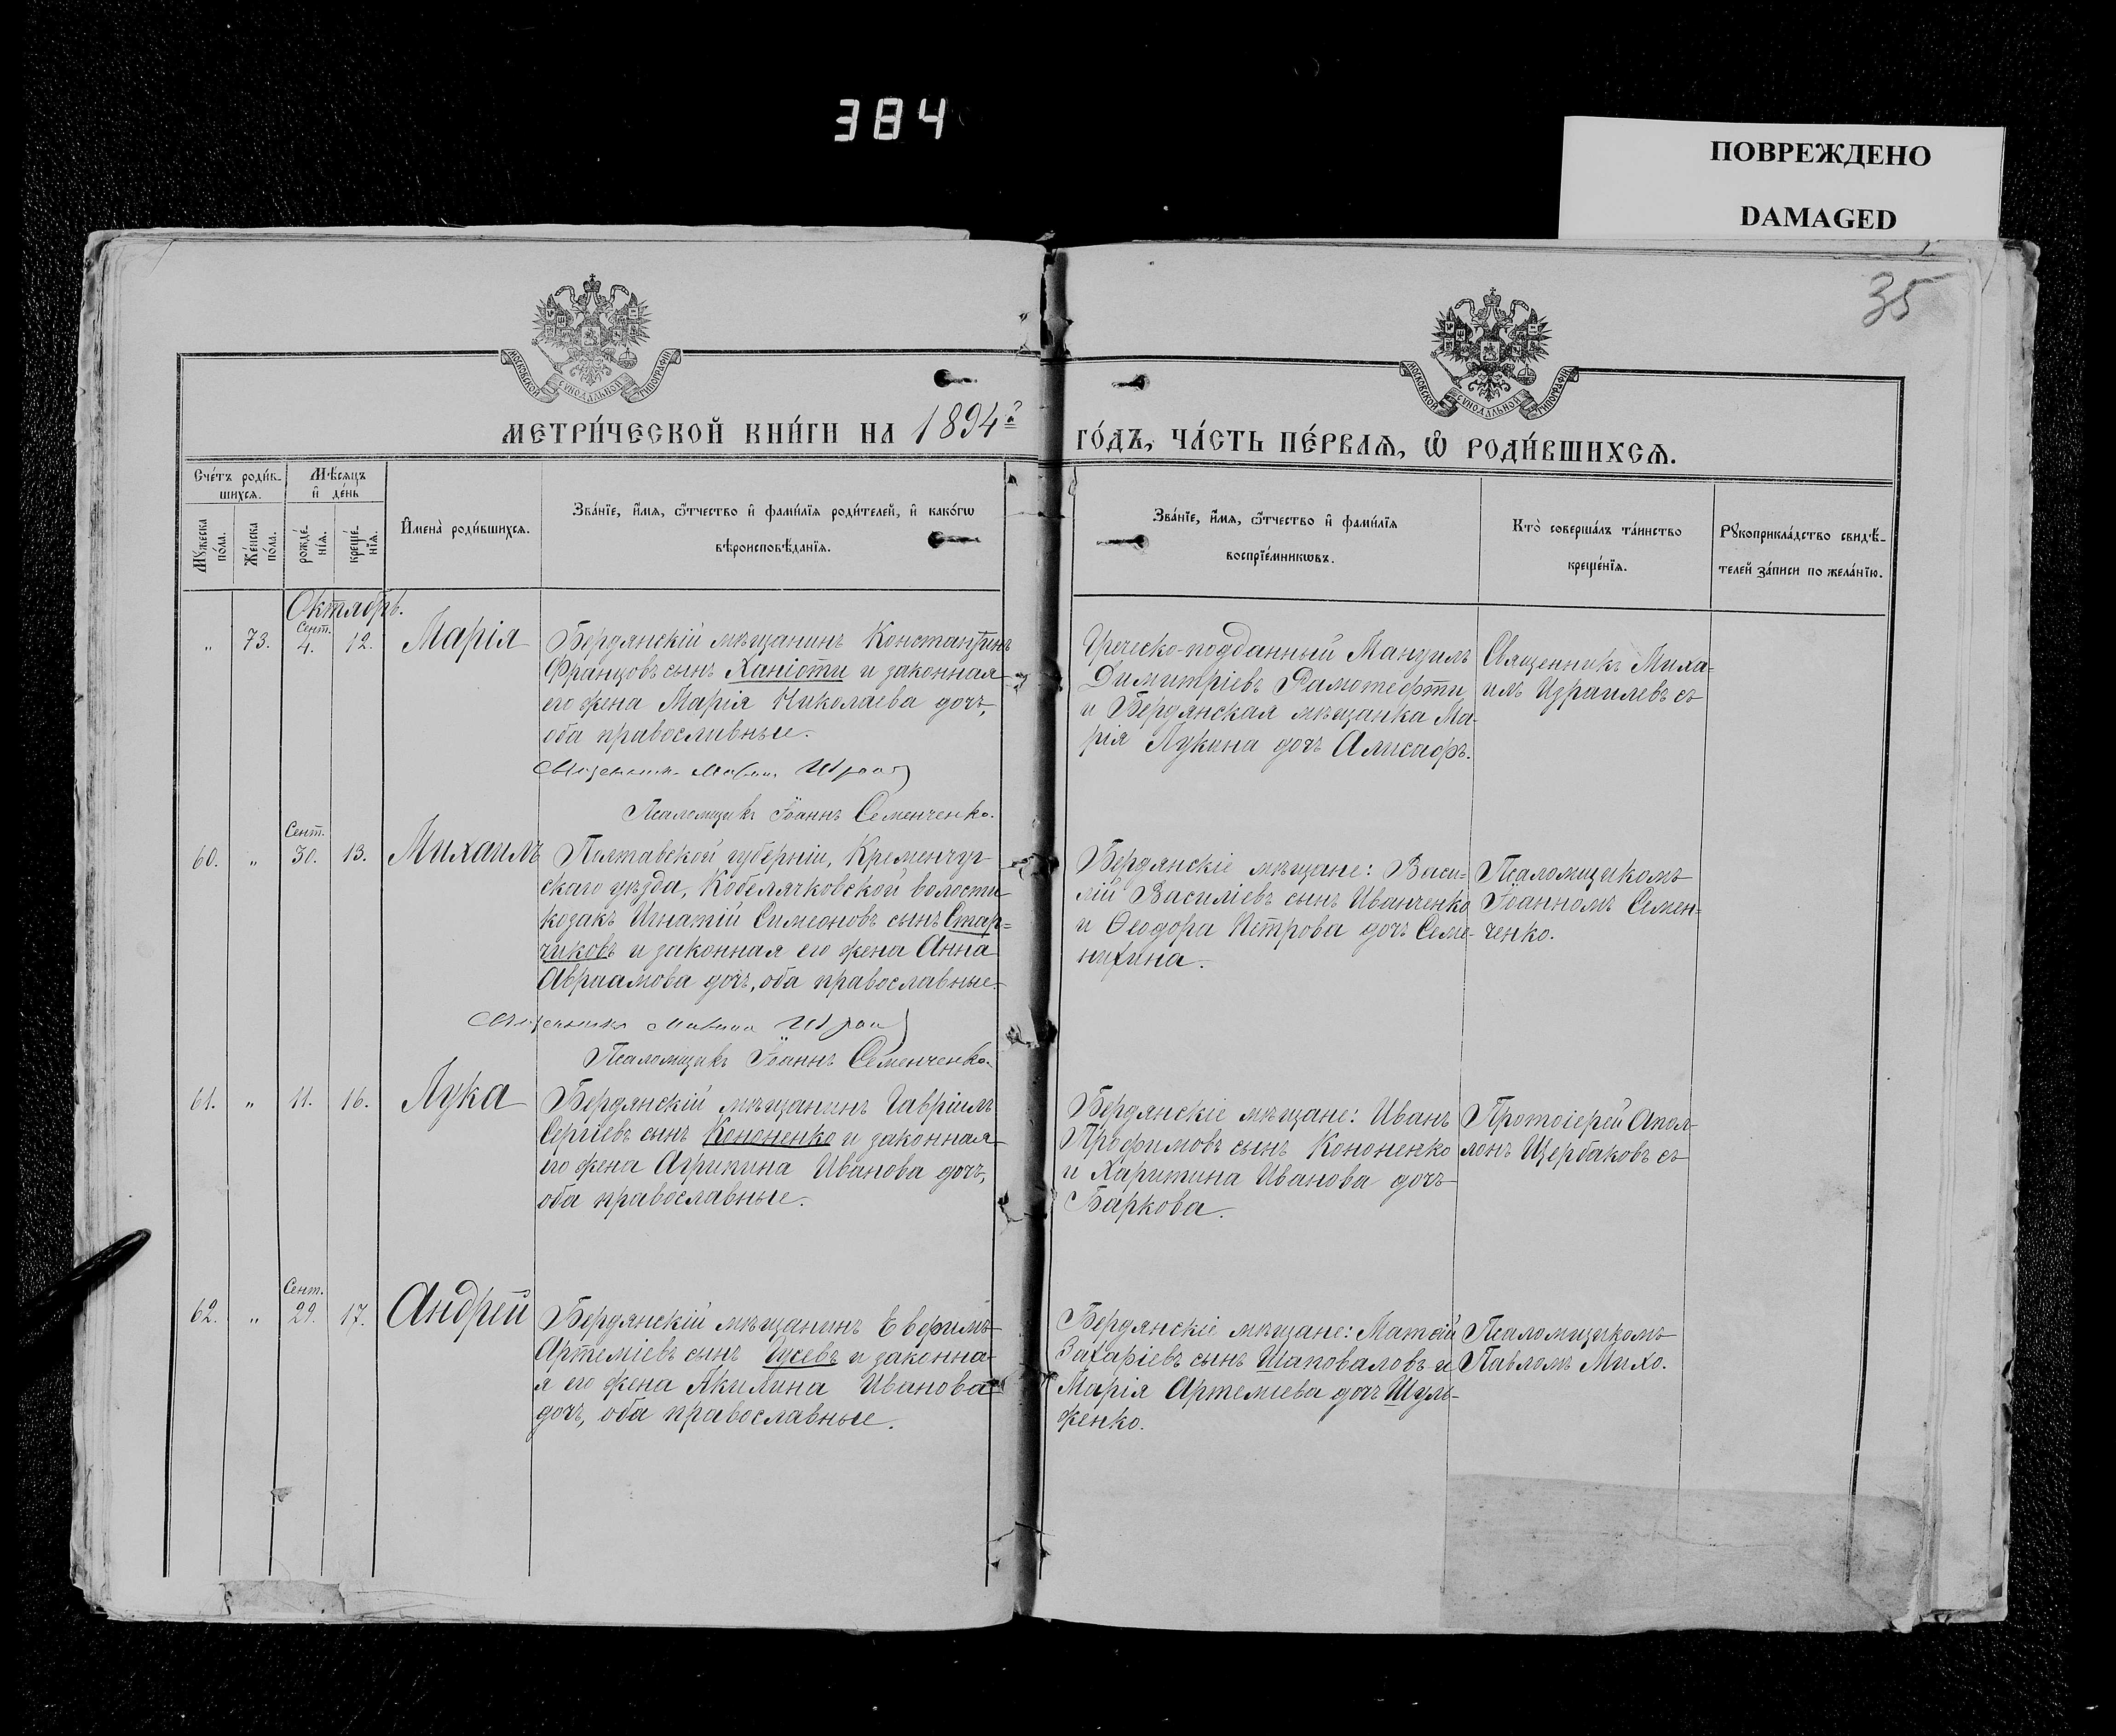 384
ПОВРЕЖДЕНО
DAMAGED
35
МОСКОВСКОЙ СѴНОДАЛЬНОЙ ТИПОГРАФІИ
МОСКОВСКОЙ СѴНОДАЛЬНОЙ ТИПОГРАФІИ
МЕТРИ́ЧЕСКОЙ КНИ́ГИ НА 1894 ГО́ДЪ, ЧА́СТЬ ПЕ́РВАѦ, Ѿ РОДИ́ВШИХСѦ.
Сче́тъ роди́в-
шихсѧ.
Мѣ́сѧцъ
и де́нь
Мꙋ́жеска по́ла.
Же́нска по́ла.
рожде́-
нїѧ.
креще́-
нїѧ.
Имена̀ роди́вшихсѧ.
Зва́нїе, и́мѧ, ѻ҆́тчество и фами́лїѧ роди́телей, и како́гѡ
вѣроисповѣ́данїѧ.
Зва́нїе, и́мѧ, ѻ҆́тчество и фами́лїѧ
воспрїе́мникѡвъ.
Кто̀ соверша́лъ та́инство
креще́нїѧ.
Рꙋкоприкла́дство свидѣ́-
телей за́писи по жела́нїю.
Октябрь.
Сент.
„ 73. 4. 12. Марія
Бердянскій мѣщанинъ Константинъ
Францовъ сынъ Ханіоти и законная
его жена Марія Николаева дочь,
оба православные.
Священникъ
Псаломщикъ Іоаннъ Семенченко.
Греческо-подданный
Димитріевъ
и Бердянская мѣщанка Ма-
рія Лукина дочь
Священникъ Миха-
илъ Израилевъ съ
Сент.
60. „ 30. 13. Михаилъ
Полтавской губерніи, Кременчуг-
скаго уѣзда, Кобелячковской волости
козакъ Игнатій Симеоновъ сынъ Стар-
чиковъ и законная его жена Анна
Авраамова дочь, оба православные.
Священникъ
Псаломщикъ Іоаннъ Семенченко.
Бердянскіе мѣщане: Васи-
лій Василіевъ сынъ Иванченко
и Ѳеодора Петрова дочь Семе-
нихина.
Псаломщикомъ
Іоанномъ Семен-
ченко.
61. „ 11. 16. Лука
Бердянскій мѣщанинъ Гавріилъ
Сергіевъ сынъ Кононенко и законная
его жена Агрипина Иванова дочь,
оба православные.
Бердянскіе мѣщане: Иванъ
Трофимовъ сынъ Кононенко
и Харитина Иванова дочь
Баркова.
Протоіерей Апол-
лонъ Щербаковъ съ
Сент.
62. „ 29. 17. Андрей
Бердянскій мѣщанинъ Евфимъ
Артеміевъ сынъ Гусевъ и законна-
я его жена Акилина Иванова
дочь, оба православные.
Бердянскіе мѣщане: Матѳій
Захаріевъ сынъ Шаповаловъ и
Марія Артеміева дочь Шуль-
женко.
Псаломщикомъ
Павломъ Михо.